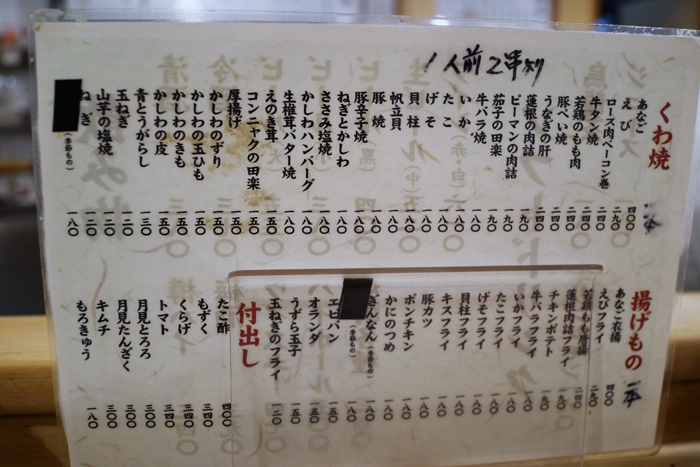 1人前2串より
くわ焼 一本
あなご 四〇〇
えび 二九〇
ロース肉ベーコン巻 二四〇
牛タン焼 二四〇
若鶏のもも肉 二四〇
豚へい焼 二四〇
うなぎの肝 二四〇
蓮根の肉詰 一九〇
ピーマンの肉詰 一九〇
茄子の田楽 一九〇
牛バラ焼 一八〇
いか 一八〇
たこ 一八〇
げそ 一八〇
貝柱 一八〇
帆立貝 一八〇
豚焼 一八〇
豚辛子焼 一八〇
ねぎとかしわ 一八〇
ささみ塩焼 一八〇
かしわハンバーグ 一八〇
生椎茸バター焼 一八〇
えのき茸 一五〇
コンニャクの田楽 一五〇
厚揚げ 一五〇
かしわのずり 一五〇
かしわの玉ひも 一五〇
かしわのきも 一五〇
かしわの皮 一五〇
青とうがらし 一三〇
玉ねぎ 一二〇
山芋の塩焼 一二〇
ねぎ 一二〇
(季節もの) 一八〇
揚げもの 一本
あなご衣揚 四〇〇
えびフライ 二九〇
若鶏もも唐揚 二四〇
蓮根肉詰フライ 一九〇
チキンポテト 一九〇
牛バラフライ 一八〇
いかフライ 一八〇
たこフライ 一八〇
げそフライ 一八〇
貝柱フライ 一八〇
キスフライ 一八〇
豚カツ 一八〇
ポンチキン 一八〇
かにのつめ 一八〇
ぎんなん(季節もの) 一八〇
(季節もの) 一八〇
エビパン 一五〇
オランダ 一五〇
うずら玉子 一五〇
玉ねぎのフライ 一二〇
付出し
たこ酢 四〇〇
もずく 三四〇
くらげ 三四〇
トマト 三四〇
月見とろろ 三〇〇
月見たんざく 三〇〇
キムチ 三〇〇
もろきゅう 一八〇